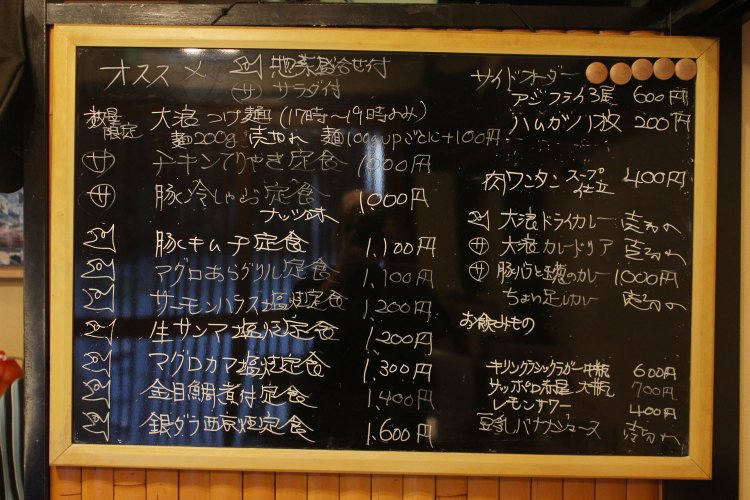 オススメ
惣菜盛合せ付
サ サラダ付
数量限定 大滝つけ麺(17時〜19時のみ)
麺200g 売切れ 麺100gupごとに+100円
サ チキンてりやき定食 1,000円
サ 豚冷しゃぶ定食 1,000円
ナッツ味
豚キムチ定食 1,100円
マグロあらグリル定食 1,100円
サーモンハラス塩焼定食 1,200円
生サンマ塩焼定食 1,200円
マグロカマ塩焼定食 1,300円
金目鯛煮付定食 1,400円
銀ダラ西京焼定食 1,600円
サイドオーダー
アジフライ3尾 600円
ハムカツ1枚 200円
肉ワンタンスープ仕立 400円
ドライカレー
サ カレードリア
サ 豚バラと のカレー 1,000円
ちょい足しカレー
お飲みもの
キリンクラシックラガー中瓶 600円
サッポロ赤星 大瓶 700円
レモンサワー 400円
豆乳バナナジュース